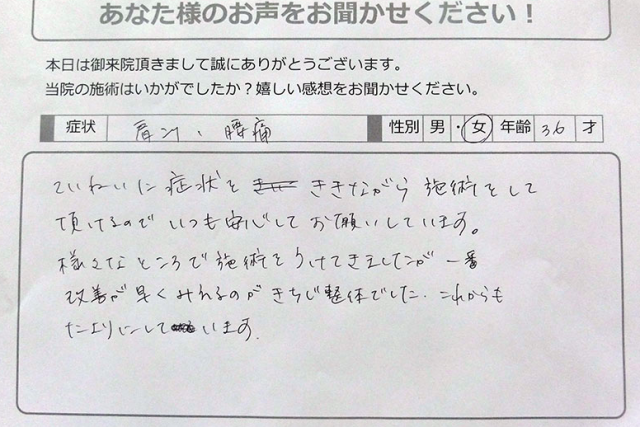 あなた様のお声をお聞かせください!
本日は御来院頂きまして誠にありがとうございます。
当院の施術はいかがでしたか?嬉しい感想をお聞かせください。
症状 肩コリ、腰痛 性別 男・女 年齢 36 才
ていねいに症状を ききながら 施術をして
頂けるので いつも安心して お願いしています。
様々なところで施術をうけてきましたが 一番
改善が早くみれるのが きらじ整体でした。これからも
たよりにして います。